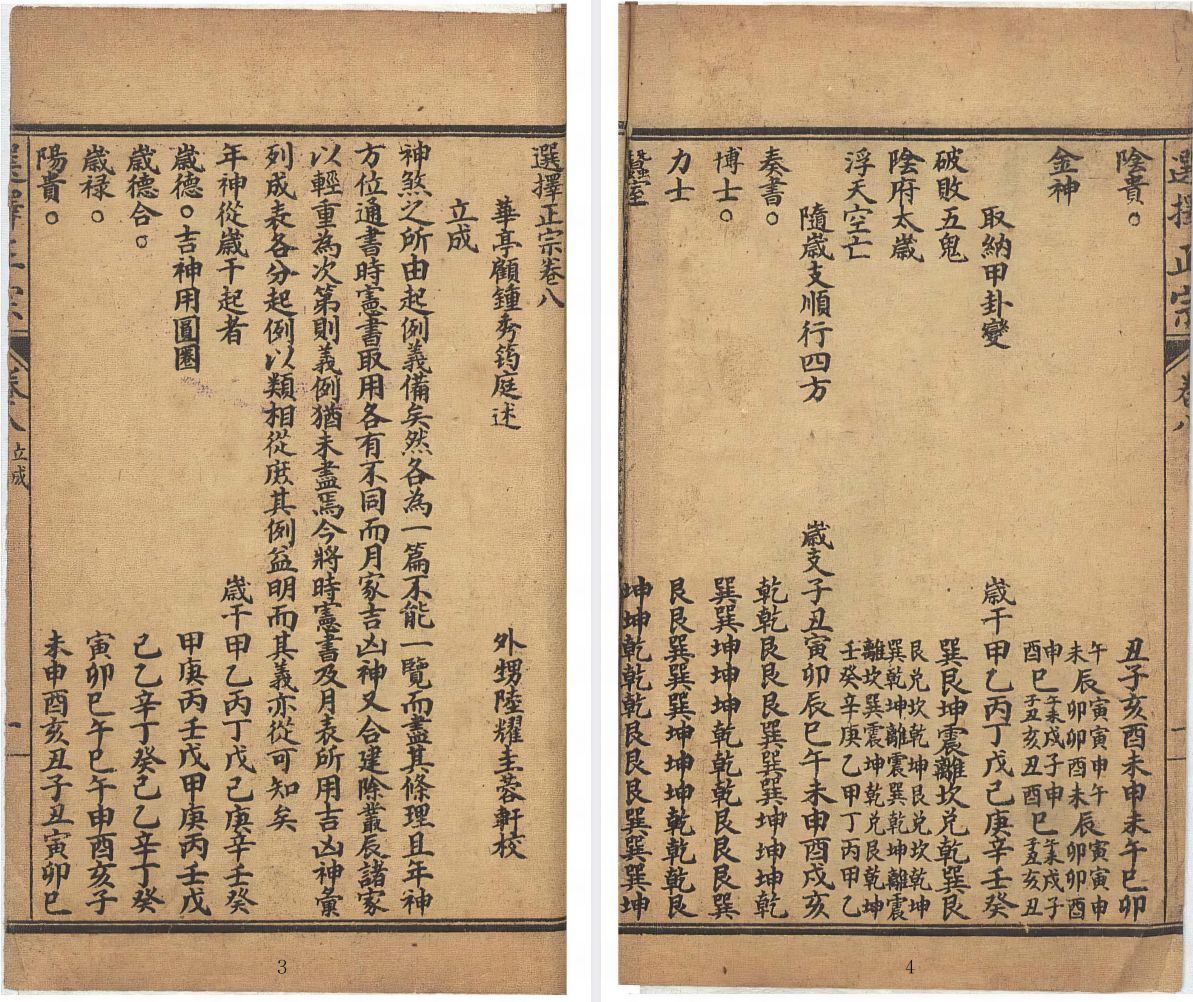 選擇正宗卷八
華亭顧鍾秀筠庭述 外甥陸耀圭蓉軒校
立成
神煞之所由起例義備矣然各為一篇不能一覽而盡其條理且年神
方位通書時憲書取用各有不同而月家吉凶神又合建除叢辰諸家
以輕重為次第則義例猶未盡焉今將時憲書及月表所用吉凶神彙
列成表各分起例以類相從庶其例益明而其義亦從可知矣
年神從歲干起者 歲干甲乙丙丁戊己庚辛壬癸
歲德○吉神用圓圈 甲庚丙壬戊甲庚丙壬戊
歲德合○ 己乙辛丁癸己乙辛丁癸
歲祿○ 寅卯巳午巳午申酉亥子
陽貴○ 未申酉亥丑子丑寅卯巳
選擇正宗 卷八 立成 一
3
選擇正宗 卷八 一
陰貴○ 丑子亥酉未申未午巳卯
金神 午寅寅申午寅寅申
未辰卯卯酉未辰卯卯酉
申午未戌子申午未戌子
酉巳子丑亥丑酉巳子丑亥丑
取納甲卦變 歲干甲乙丙丁戊己庚辛壬癸
破敗五鬼 巽艮坤震離坎兌乾巽艮
陰府太歲 艮兌坎乾坤艮兌坎乾坤
巽乾坤離震巽乾坤離震
浮天空亡 離坎巽震坤乾兌艮乾坤
壬癸辛庚乙甲丁丙甲乙
隨歲支順行四方 歲支子丑寅卯辰巳午未申酉戌亥
奏書○ 乾乾艮艮艮巽巽巽坤坤坤乾
博士○ 巽巽坤坤坤乾乾乾艮艮艮巽
力士 艮艮巽巽巽坤坤坤乾乾乾艮
蠶室 坤坤乾乾乾艮艮艮巽巽巽坤
4